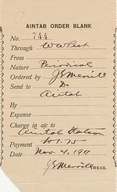 AINTAB ORDER BLANK
No. 744
Through W W Peet
From
Nature
Ordered by J S Merrill
Send to Dr
Aintab
By
Expense
Charge in a/c to
Aintab Station
Payment
Date Nov. 4, 191
J S Merrill